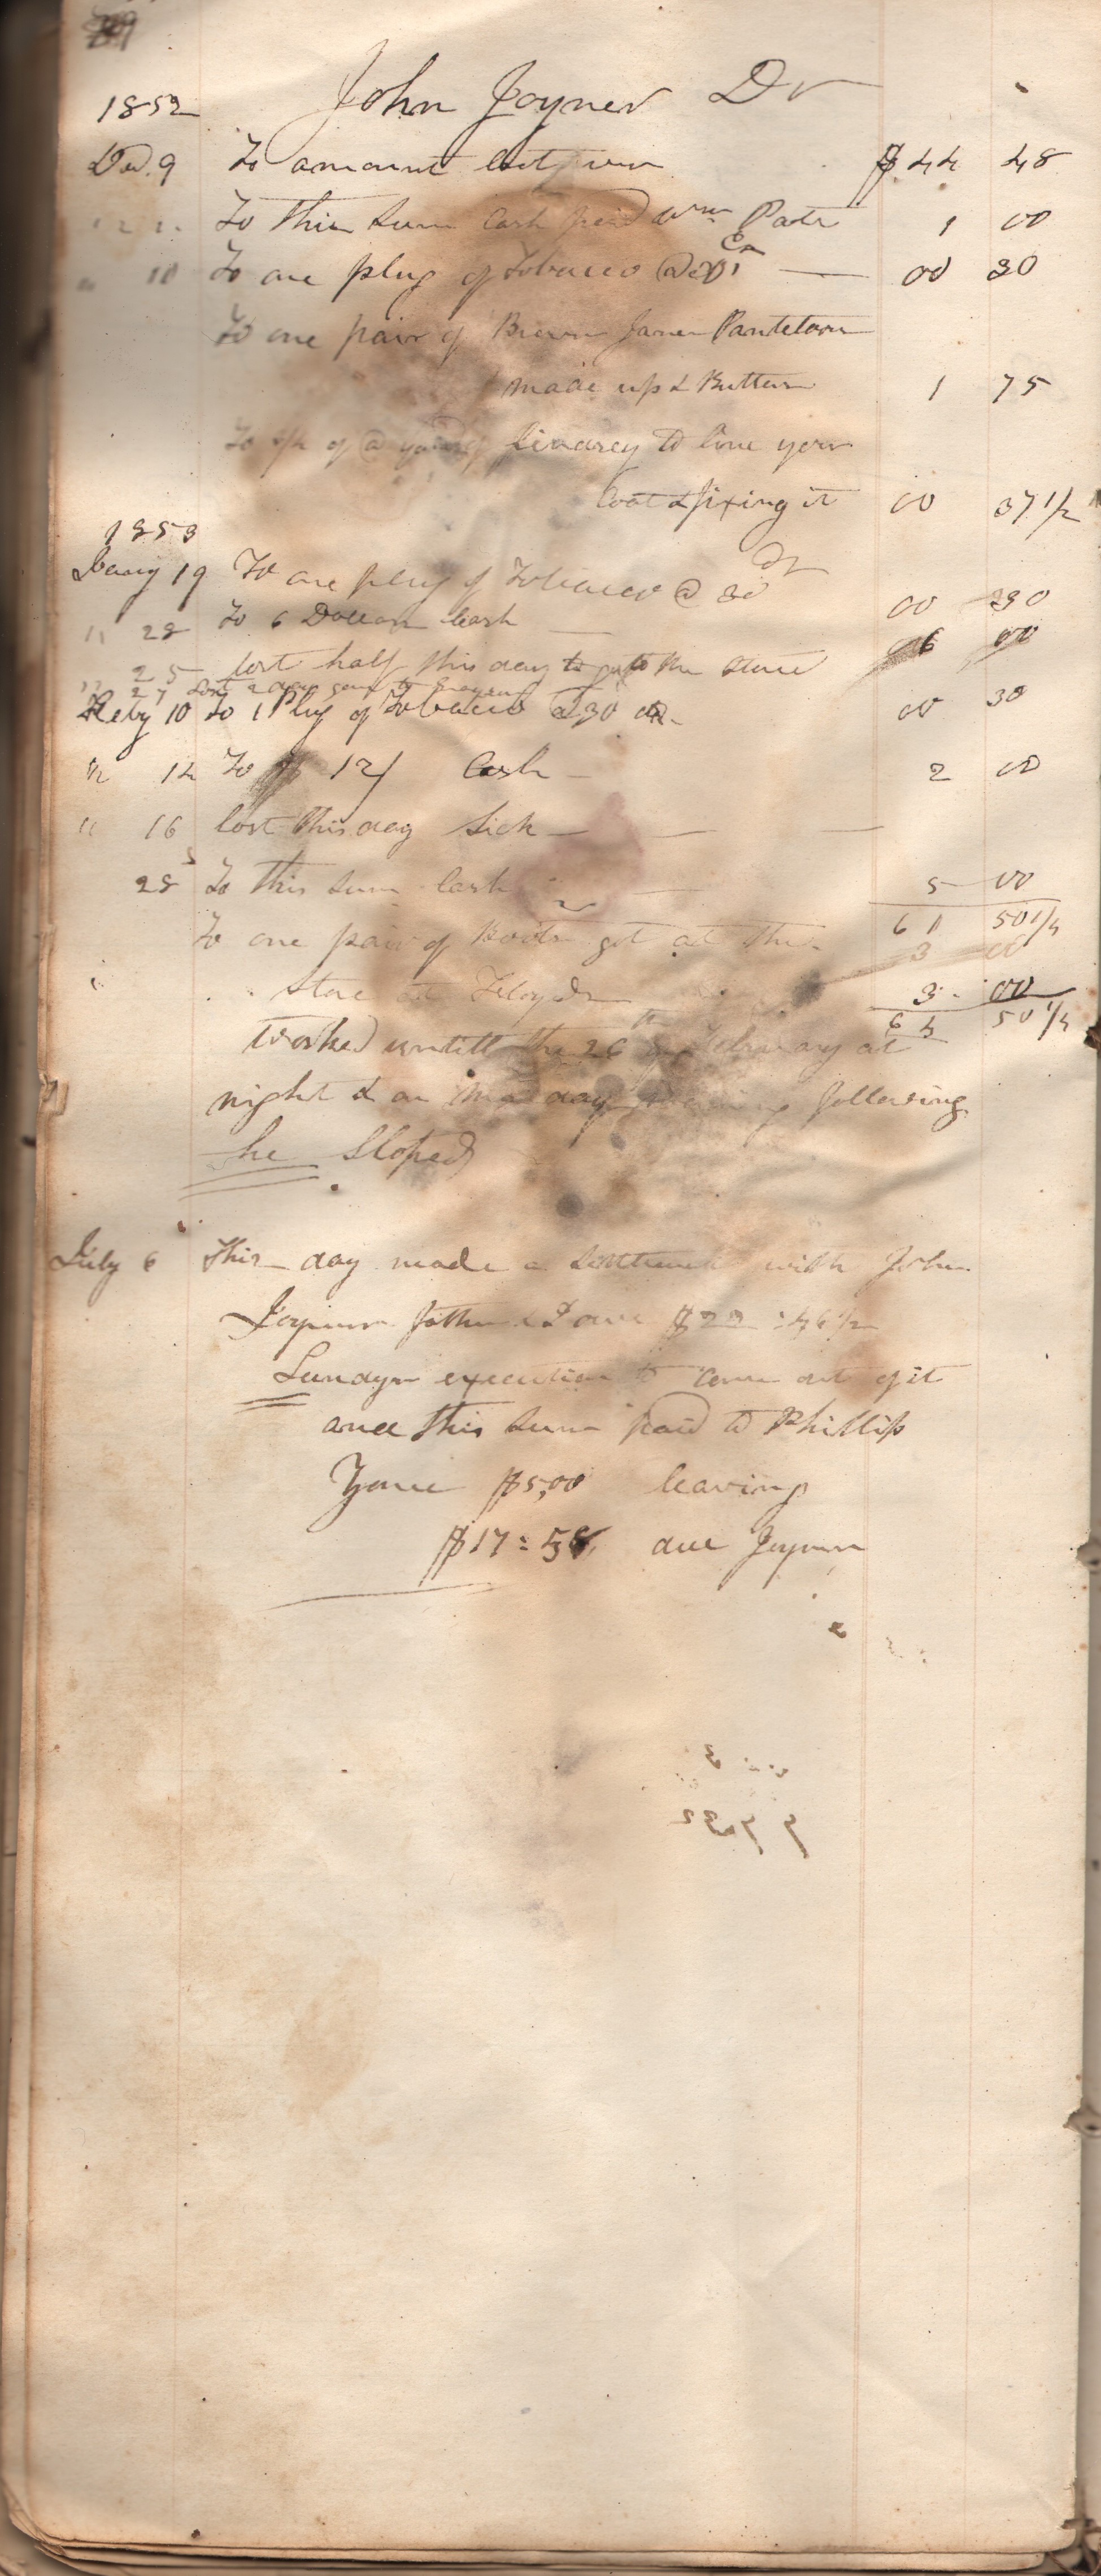 John Joyner Dr
1852
Dec. 9 To amount brot over $ 44 48
To this sum Cash paid Wm Pate 1 00
" 10 To one plug of Tobacco @ 30 Cn 00 30
To one pair of Brown Janes Panteloon
made up & Buttons 1 75
To of @ yard of linsey to line your
Coat & fixing it 00 37 1/2
1853
Jany 19 To one plug of Tobacco @ 30 00 30
" 22 To 6 Dollars Cash 6 00
" 25 lost half this day to go to the store
" 27 lost 2 days gone to
Feby 10 To 1 Plug of Tobacco @ 30 00 30
" 12 To 12/ Cash 2 00
" 16 lost this day Sick
28 To this sum Cash 5 00
61 50 1/4
To one pair of Boots got at the 3 00
Store at Floyds 3 00
64 50 1/4
Worked untill the 26th of February at
night & on day following
he Sloped
July 6 This day made a Settlement with John
Joyners father & I owe $22 : 1/2
Lundys execution to come out of it
and this sum paid to Phillip
$5,00 leaving
$17 : 58 due Joyner